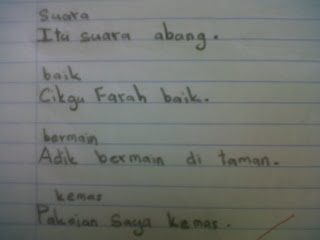 Suara
Itu suara abang.
baik
Cikgu Farah baik.
bermain
Adik bermain di taman.
kemas
Pakaian saya kemas.